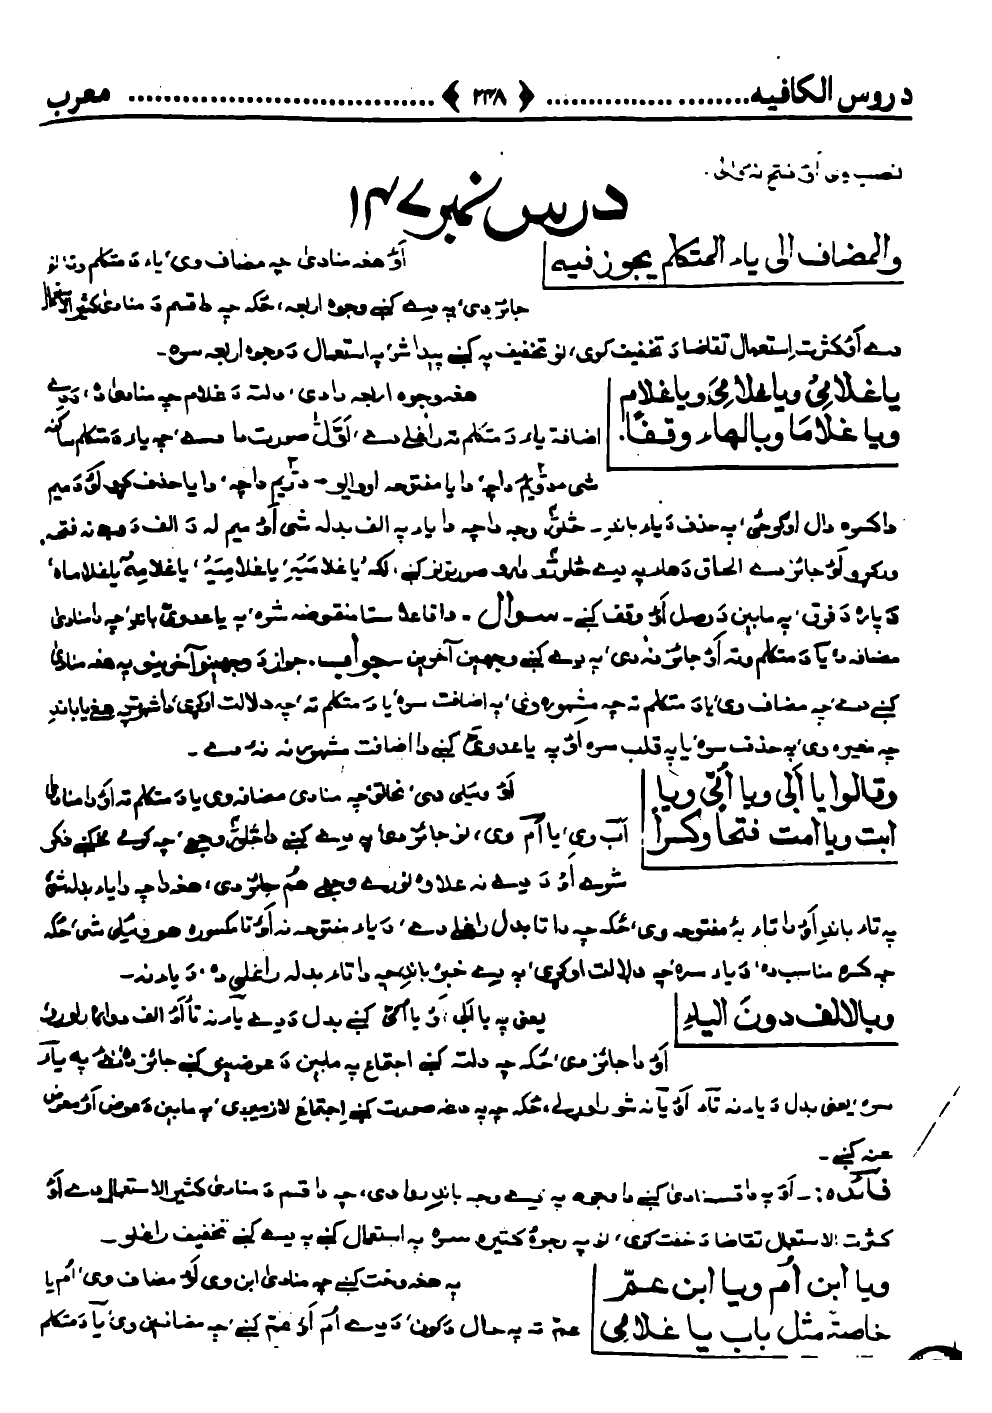 دروس الكافيه ........ ﴿ ٢٣٨ ﴾ ........ معرب
نصب وی اَؤ فتح نه
درس نمبر ١٣٧
والمضاف الی یاء المتكلم یجوز فیه
اَؤ هغه منادیٰ چه مضاف وی، یاء دَ متكلم وته نو
جائز دی، په دے كښے وجوه اربعه، حُكه چه دا قسم دَ منادیٰ كثیر الاستعمال
دے اَؤ كثرتِ اِستعمال تقاضا دَ تخفیف كوی، نو تخفیف په كښے پیدا شو په استعمال دَ وجوه اربعه سره ـ
یا غلامِیْ ویا غلامِیَ ویا غلامِ
ویا غلامَا وبالهاء وقفًا.
هغه وجوه اربعه دا دی، دلته دَ غلام چه منادیٰ دهٔ، دَدے
اضافة یاء دَ متكلم ته راغلے دے، اَوّل صورت دا دے، چه یاء دَ متكلم ساكنه
شی ـ دویم دا چه، دا یا مفتوحه اووایو ـ دریم دا چه، دا یا حذف كړو اَؤ دَ میم
دا كسره دال اوكړی، په حذف دَ یاء باندِ ـ څلورم وجه دا چه دا یاء په الف بدله شی اَؤ میم له دَ الف دَ وجه نه فتحه
وركړو اَؤ جائز دے الحاق دَ هاء په دے څلورو واړو صورتونو كښے، لكه یا غلامِیَهْ، یا غلامِیَهْ، یا غلامِهْ یا غلاماه،
دَ پاره دَ فرق، په مابین دَ وصل اَؤ وقف كښے ـ سوال ـ دا قاعده ستا منقوضه شوه، په یا عدوی باندِ، چه دا منادیٰ
مضاف دهٔ یاء دَ متكلم وته اَؤ جائز نه دی، په دے كښے وجهین آخرین ـ جواب ـ جواز دَ وجهینو آخرینو په هغه منادیٰ
كښے دے، چه مضاف وی، یاء دَ متكلم ته چه مشهوره وی، په اضافت سره، یاء دَ متكلم ته، چه دلالت اوكړی، دا شهرت په هغے یا باندِ
چه مغیره وی، په حذف سره، یا په قلب سره اَؤ په یا عدوی كښے دا اضافت مشهوره نه دے ـ
وقالوا یا اَبی ویا اُمّی ویا
ابت ویا امت فتحًا وكسرًا
اَؤ ویلی دی، نحاتو چه منادیٰ مضاف وی یاء دَ متكلم ته اَؤ دا منادیٰ
اَب وی، یا اُم وی، نو جائز دی، په دے كښے دا څلور وجے، چه كومے مخكښے ذكر
شوے اَؤ دَ دے نه علاوه نورے وجے هم جائز دی، هغه دا چه دا یاء بدله شی
په تاء باندِ اَؤ دا تاء به مفتوحه وی، حُكه چه دا تا بدل راغلے دے، دَ یاء مفتوحه نه اَؤ تا مكسوره هم ویلی شی، حُكه
چه كسره مناسب ده، دَ یاء سره، چه دلالت اوكړی، په دے خبره باندِ، چه دا تاء بدله راغلی ده، دَ یاء نه ـ
وبالالف دونَ الیاءِ
یعنی په یا ابی، اَؤ یا امی كښے بدل دَ دے یاء نه تا اَؤ الف دواړه راوړل
اَؤ دا جائز دی، حُكه چه دلته كښے اجتماع په مابین دَ عوضین كښے جائز ده نه په یاء
سره، یعنی بدل دَ یاء نه تاء اَؤ یاء نه شو راوړلے، حُكه چه په دغه صورت كښے اِجتماع لازمیږی، په مابین دَ عوض اَؤ معوض
عنه كښے ـ
فائده:ـ اَؤ په دا قسم منادیٰ كښے دا وجوه په دے وجه باندِ روا دی، چه دا قسم دَ منادیٰ كثیر الاستعمال دے اَؤ
كثرت الاستعمال تقاضا دَ خفت كوی، نو په وجوهٔ كثیره سره په استعمال كښے په دے كښے تخفیف راغلو ـ
ویا ابن اُم ویا ابن عمّ
خاصةً مثل باب یا غلامی
په هغه وخت كښے چه منادیٰ ابن وی اَؤ مضاف وی، اُم یا
عمّ ته په حال دَ كون، دَ دے اُم اَؤ عمّ كښے، چه مضافین وی، یاء دَ متكلم